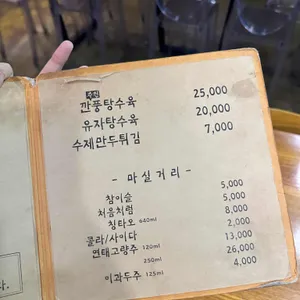 추천
깐풍탕수육 25,000
유자탕수육 20,000
수제만두튀김 7,000
- 마실거리 -
참이슬 5,000
처음처럼 5,000
칭타오 640ml 8,000
콜라/사이다 2,000
연태고량주 120ml 13,000
250ml 26,000
이과두주 125ml 4,000
다.